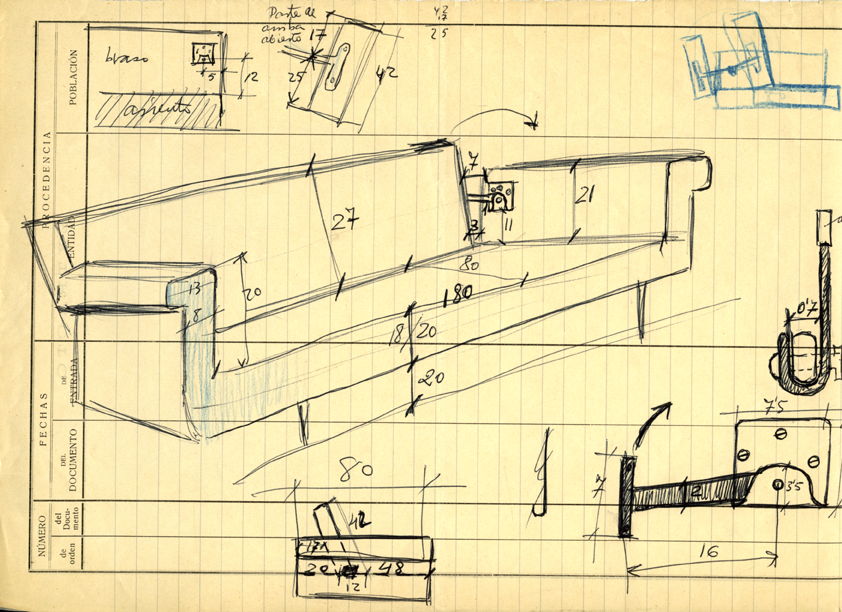 Parte de
arriba
abierto
17
25
42
42
17
25
brazo
5
12
asiento
POBLACIÓN
PROCEDENCIA
ENTIDAD
7
27
3
11
21
80
13
20
8
180
18/20
20
0'7
DE
ENTRADA
FECHAS
DEL
DOCUMENTO
7'5
7
2
3'5
16
80
42
20
12
48
NÚMERO
del
Docu-
mento
de
orden